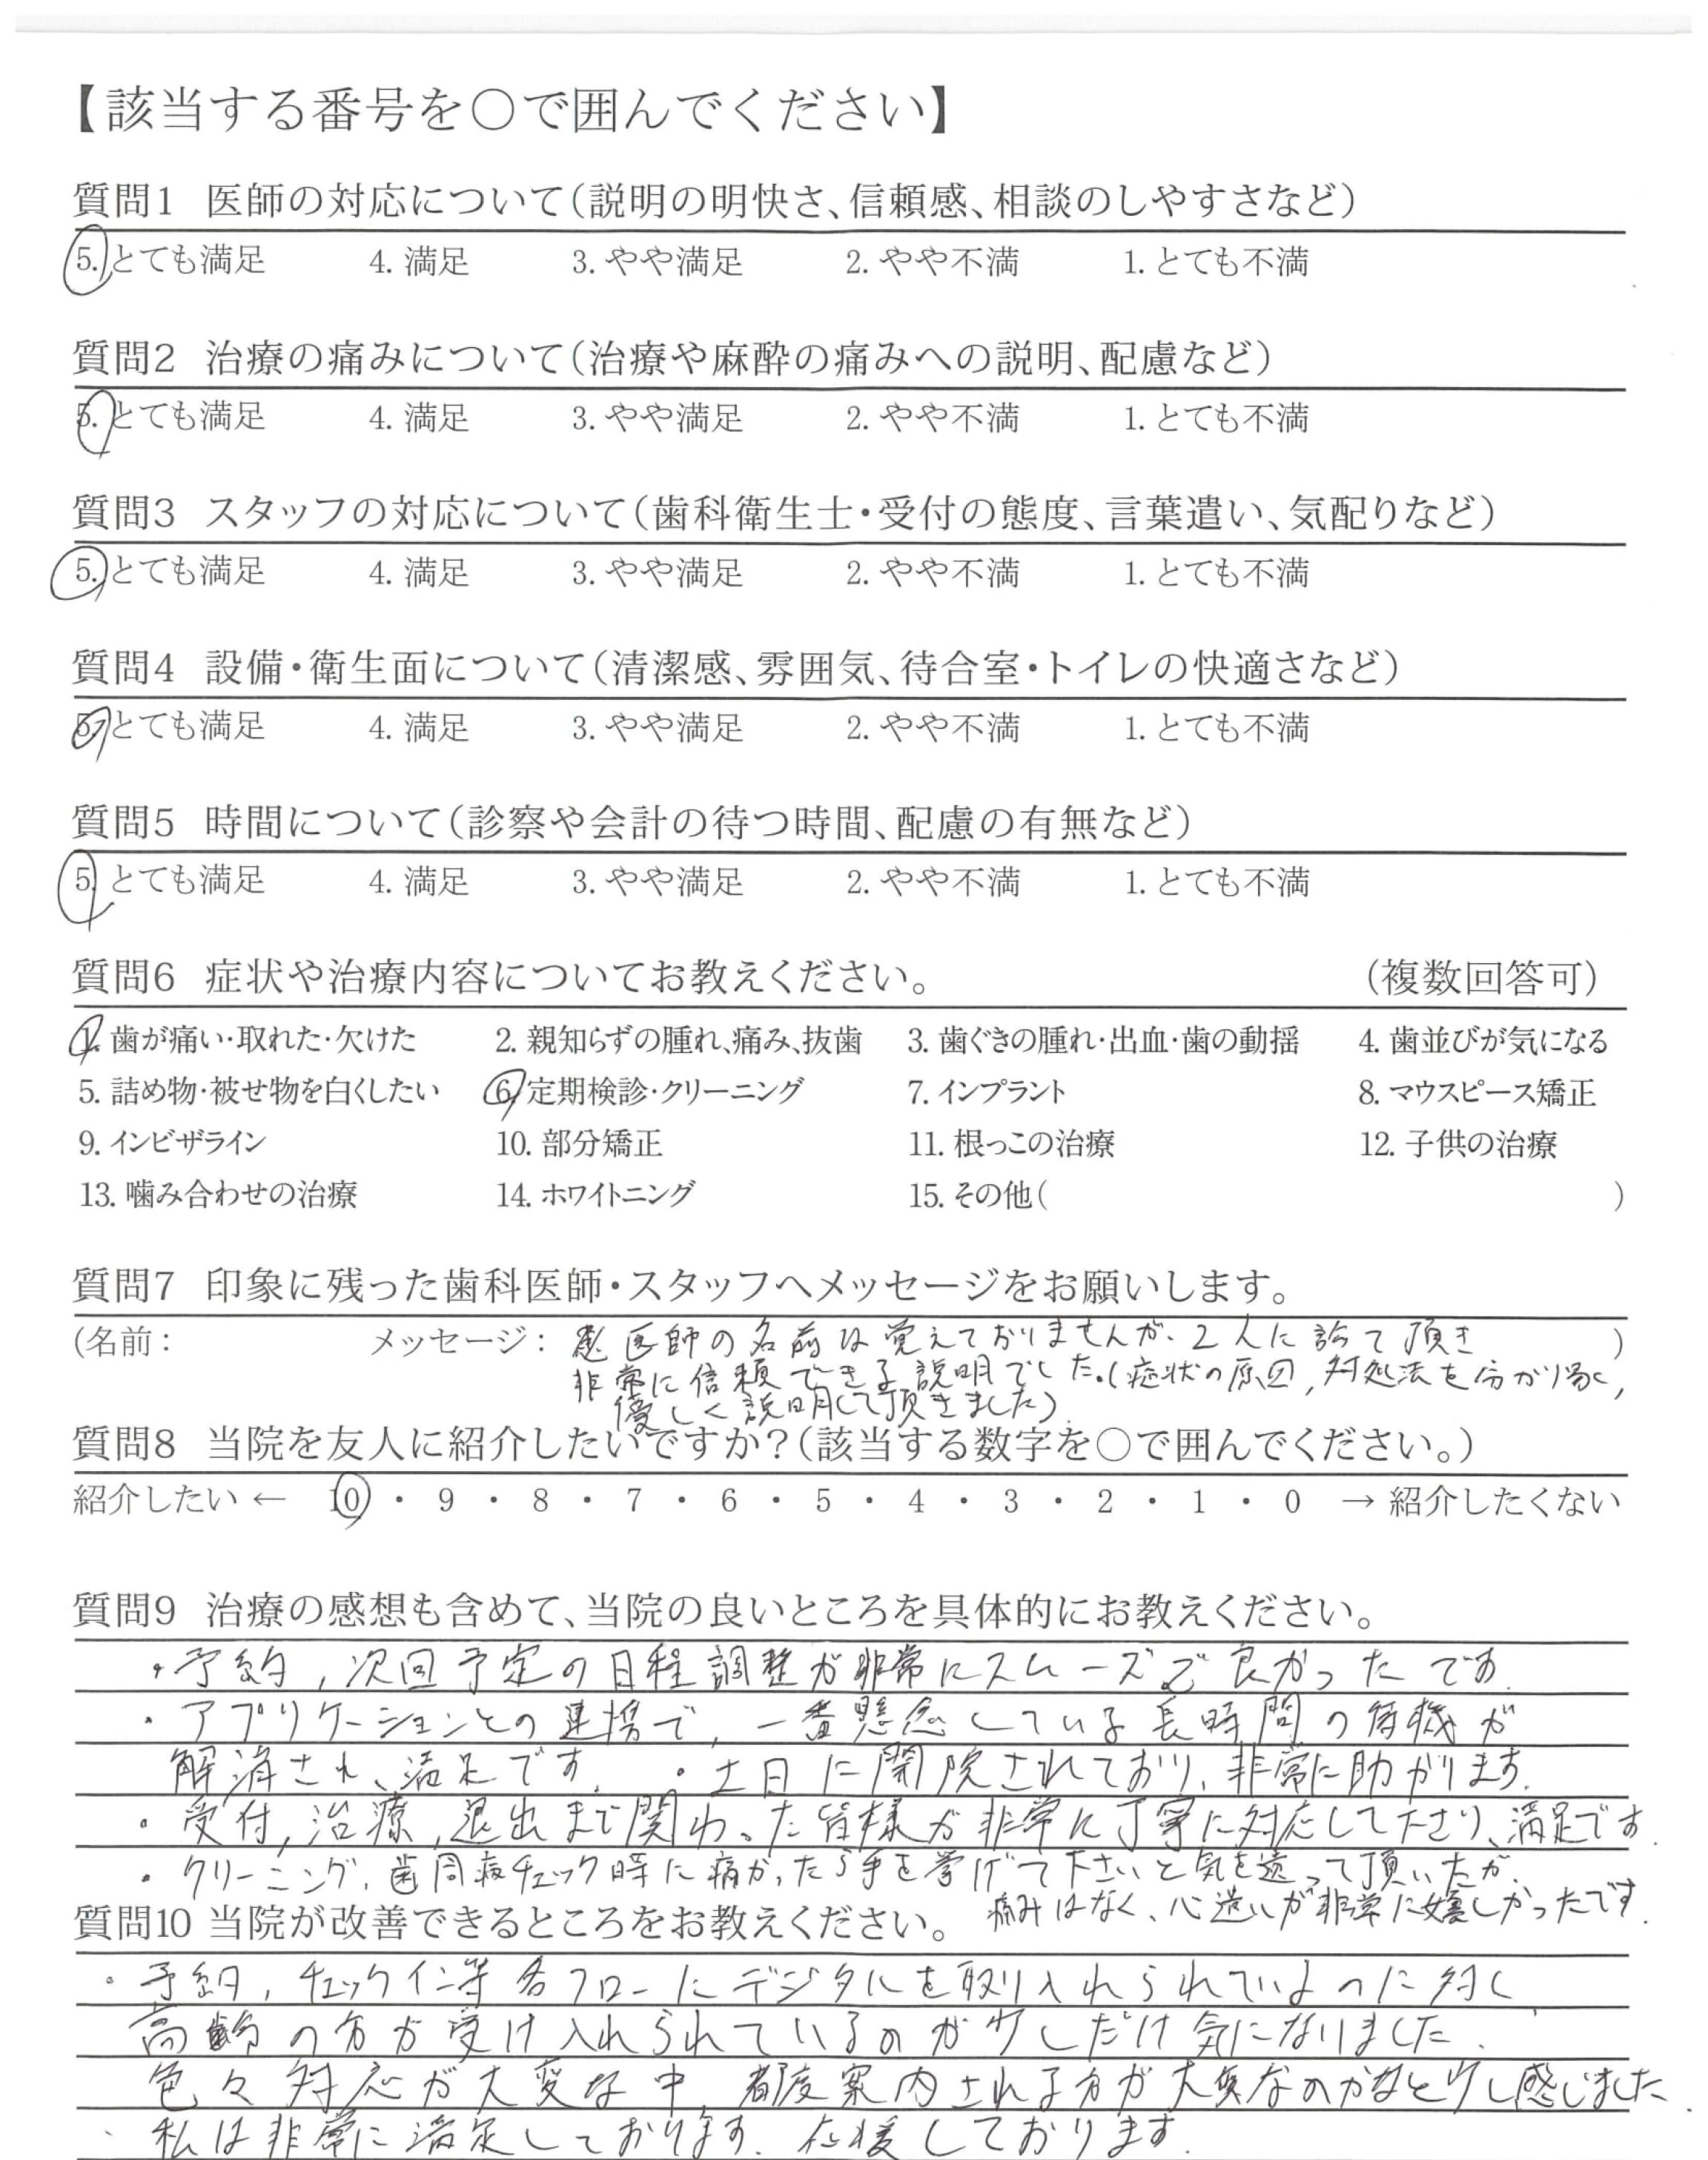 【該当する番号を○で囲んでください】
質問1 医師の対応について(説明の明快さ、信頼感、相談のしやすさなど)
5. とても満足 4. 満足 3. やや満足 2. やや不満 1. とても不満
質問2 治療の痛みについて(治療や麻酔の痛みへの説明、配慮など)
5. とても満足 4. 満足 3. やや満足 2. やや不満 1. とても不満
質問3 スタッフの対応について(歯科衛生士・受付の態度、言葉遣い、気配りなど)
5. とても満足 4. 満足 3. やや満足 2. やや不満 1. とても不満
質問4 設備・衛生面について(清潔感、雰囲気、待合室・トイレの快適さなど)
5. とても満足 4. 満足 3. やや満足 2. やや不満 1. とても不満
質問5 時間について(診察や会計の待つ時間、配慮の有無など)
5. とても満足 4. 満足 3. やや満足 2. やや不満 1. とても不満
質問6 症状や治療内容についてお教えください。 (複数回答可)
1. 歯が痛い・取れた・欠けた 2. 親知らずの腫れ、痛み、抜歯 3. 歯ぐきの腫れ・出血・歯の動揺 4. 歯並びが気になる
5. 詰め物・被せ物を白くしたい 6. 定期検診・クリーニング 7. インプラント 8. マウスピース矯正
9. インビザライン 10. 部分矯正 11. 根っこの治療 12. 子供の治療
13. 噛み合わせの治療 14. ホワイトニング 15. その他( )
質問7 印象に残った歯科医師・スタッフへメッセージをお願いします。
(名前: メッセージ: 医師の名前は覚えておりませんが、2人に診て頂き )
非常に信頼できる説明でした。(症状の原因,対処法を分かり易く,
優しく説明して頂きました)
質問8 当院を友人に紹介したいですか?(該当する数字を○で囲んでください。)
紹介したい ← 10 ・ 9 ・ 8 ・ 7 ・ 6 ・ 5 ・ 4 ・ 3 ・ 2 ・ 1 ・ 0 → 紹介したくない
質問9 治療の感想も含めて、当院の良いところを具体的にお教えください。
・予約,次回予定の日程調整が非常にスムーズで良かったです.
・アプリケーションとの連携で,一番懸念している長時間の待機が
解消され、満足です. ・土日に開院されており、非常に助かります.
・受付,治療,退出まで関わった皆様が非常に丁寧に対応して下さり、満足です.
・クリーニング、歯周病チェック時に痛かったら手を挙げて下さいと気を遣って頂いたが、
痛みはなく、心遣いが非常に嬉しかったです.
質問10 当院が改善できるところをお教えください。
・予約,チェックイン等各フローにデジタルを取り入れられているのに対し
高齢の方が受け入れられているのが少しだけ気になりました.
色々対応が大変な中,都度案内される方が大変なのかなと少し感じました.
・私は非常に満足しております. 応援しております.